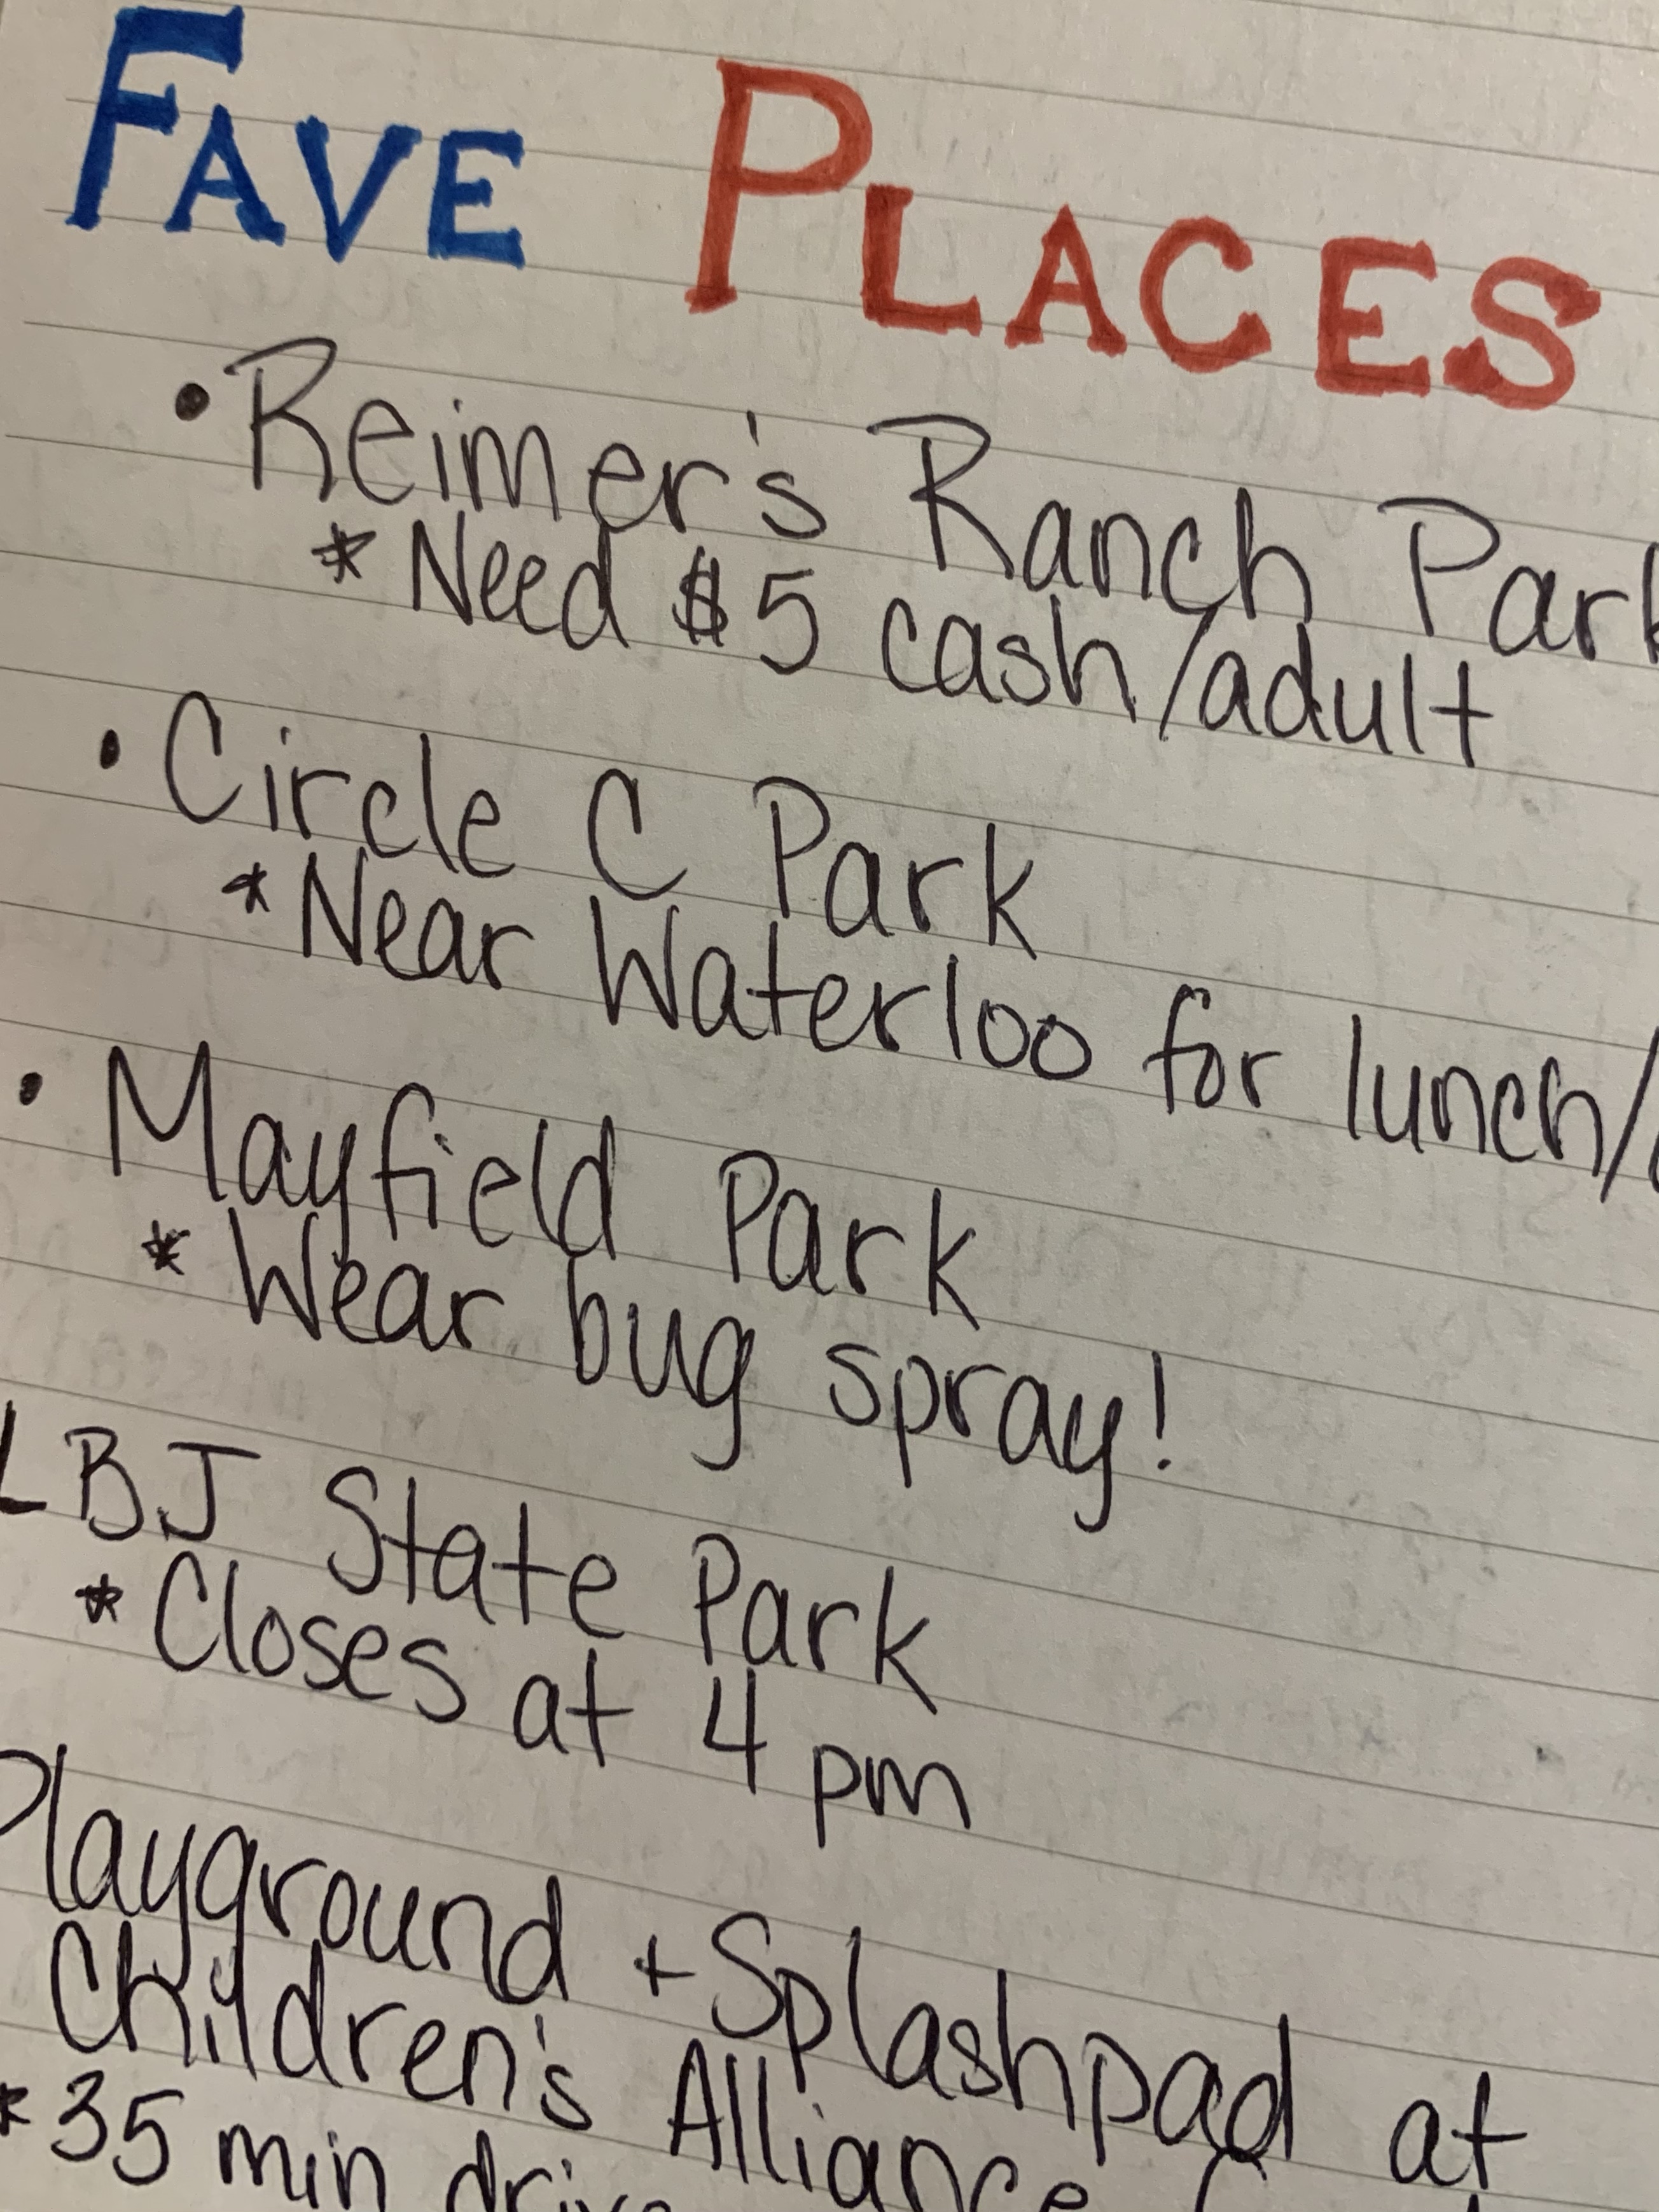 FAVE PLACES
• Reimer's Ranch Park
* Need $5 cash/adult
• Circle C Park
* Near Waterloo for lunch/
• Mayfield Park
* Wear bug spray!
LBJ State Park
* Closes at 4 pm
Playground + Splashpad at
Children's Alliance
* 35 min drive